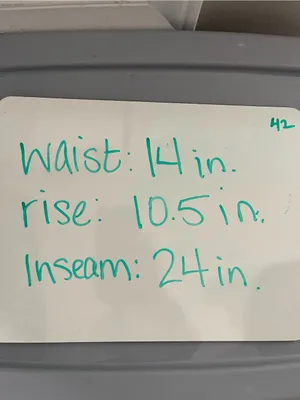 42
Waist: 14 in.
rise: 10.5 in.
Inseam: 24 in.